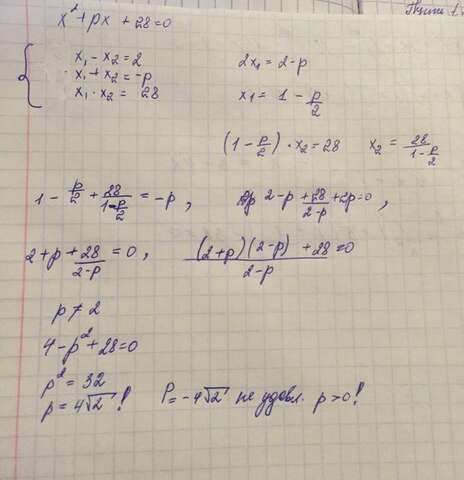 x² + px + 28 = 0
x₁ - x₂ = 2
x₁ + x₂ = -p
x₁ · x₂ = 28
2x₁ = 2 - p
x₁ = 1 - p/2
(1 - p/2) · x₂ = 28 x₂ = 28/(1 - p/2)
1 - p/2 + 28/(1 - p/2) = -p , 2 - p + 28/(2 - p) + 2p = 0 ,
2 + p + 28/(2 - p) = 0 , ((2 + p)(2 - p) + 28)/(2 - p) = 0
p ≠ 2
4 - p² + 28 = 0
p² = 32
p = 4√2 ! P = -4√2 не удовл. p > 0 !